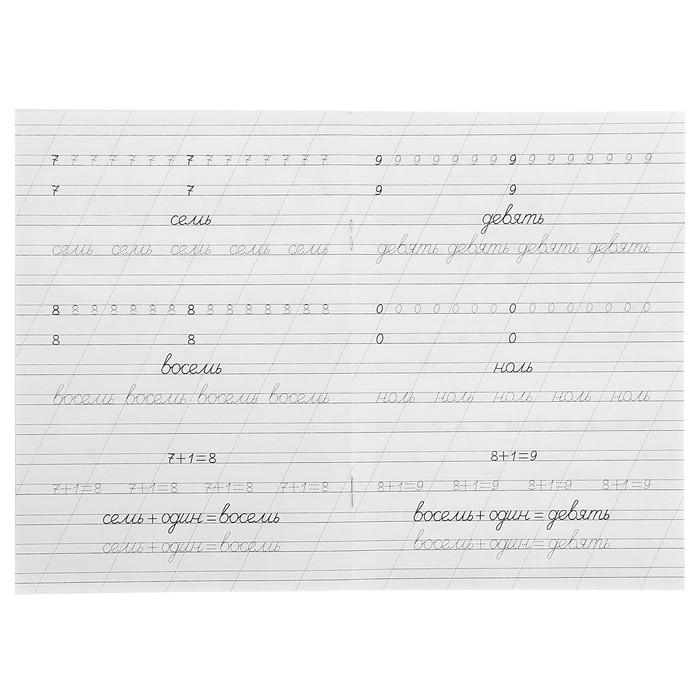 7 7 7 7 7 7 7 7 7 7 7 7 7 7 7
7 7
семь
семь семь семь семь семь
8 8 8 8 8 8 8 8 8 8 8 8 8 8 8
8 8
восемь
восемь восемь восемь восемь
7+1=8
7+1=8 7+1=8 7+1=8 7+1=8
семь+один=восемь
семь+один=восемь
9 9 9 9 9 9 9 9 9 9 9 9 9 9 9
9 9
девять
девять девять девять девять
0 0 0 0 0 0 0 0 0 0 0 0 0 0 0
0 0
ноль
ноль ноль ноль ноль ноль
8+1=9
8+1=9 8+1=9 8+1=9 8+1=9
восемь+один=девять
восемь+один=девять